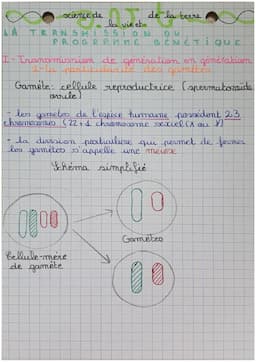 science de la vie et de la terre
LA TRANSMISSION DU
PROGRAMME GÉNÉTIQUE
I - Transmission de génération en génération
1- la particularité des gamètes
Gamète: cellule reproductrice (spermatozoïde
ovule)
• les gamètes de l'espèce humaine possèdent 23
chromosomes (22+1 chromosome sexuel (X ou Y)
• la division particulière qui permet de former
les gamètes s'appelle une meïose
Schéma simplifié
Gamètes
Cellule-mère
de gamète